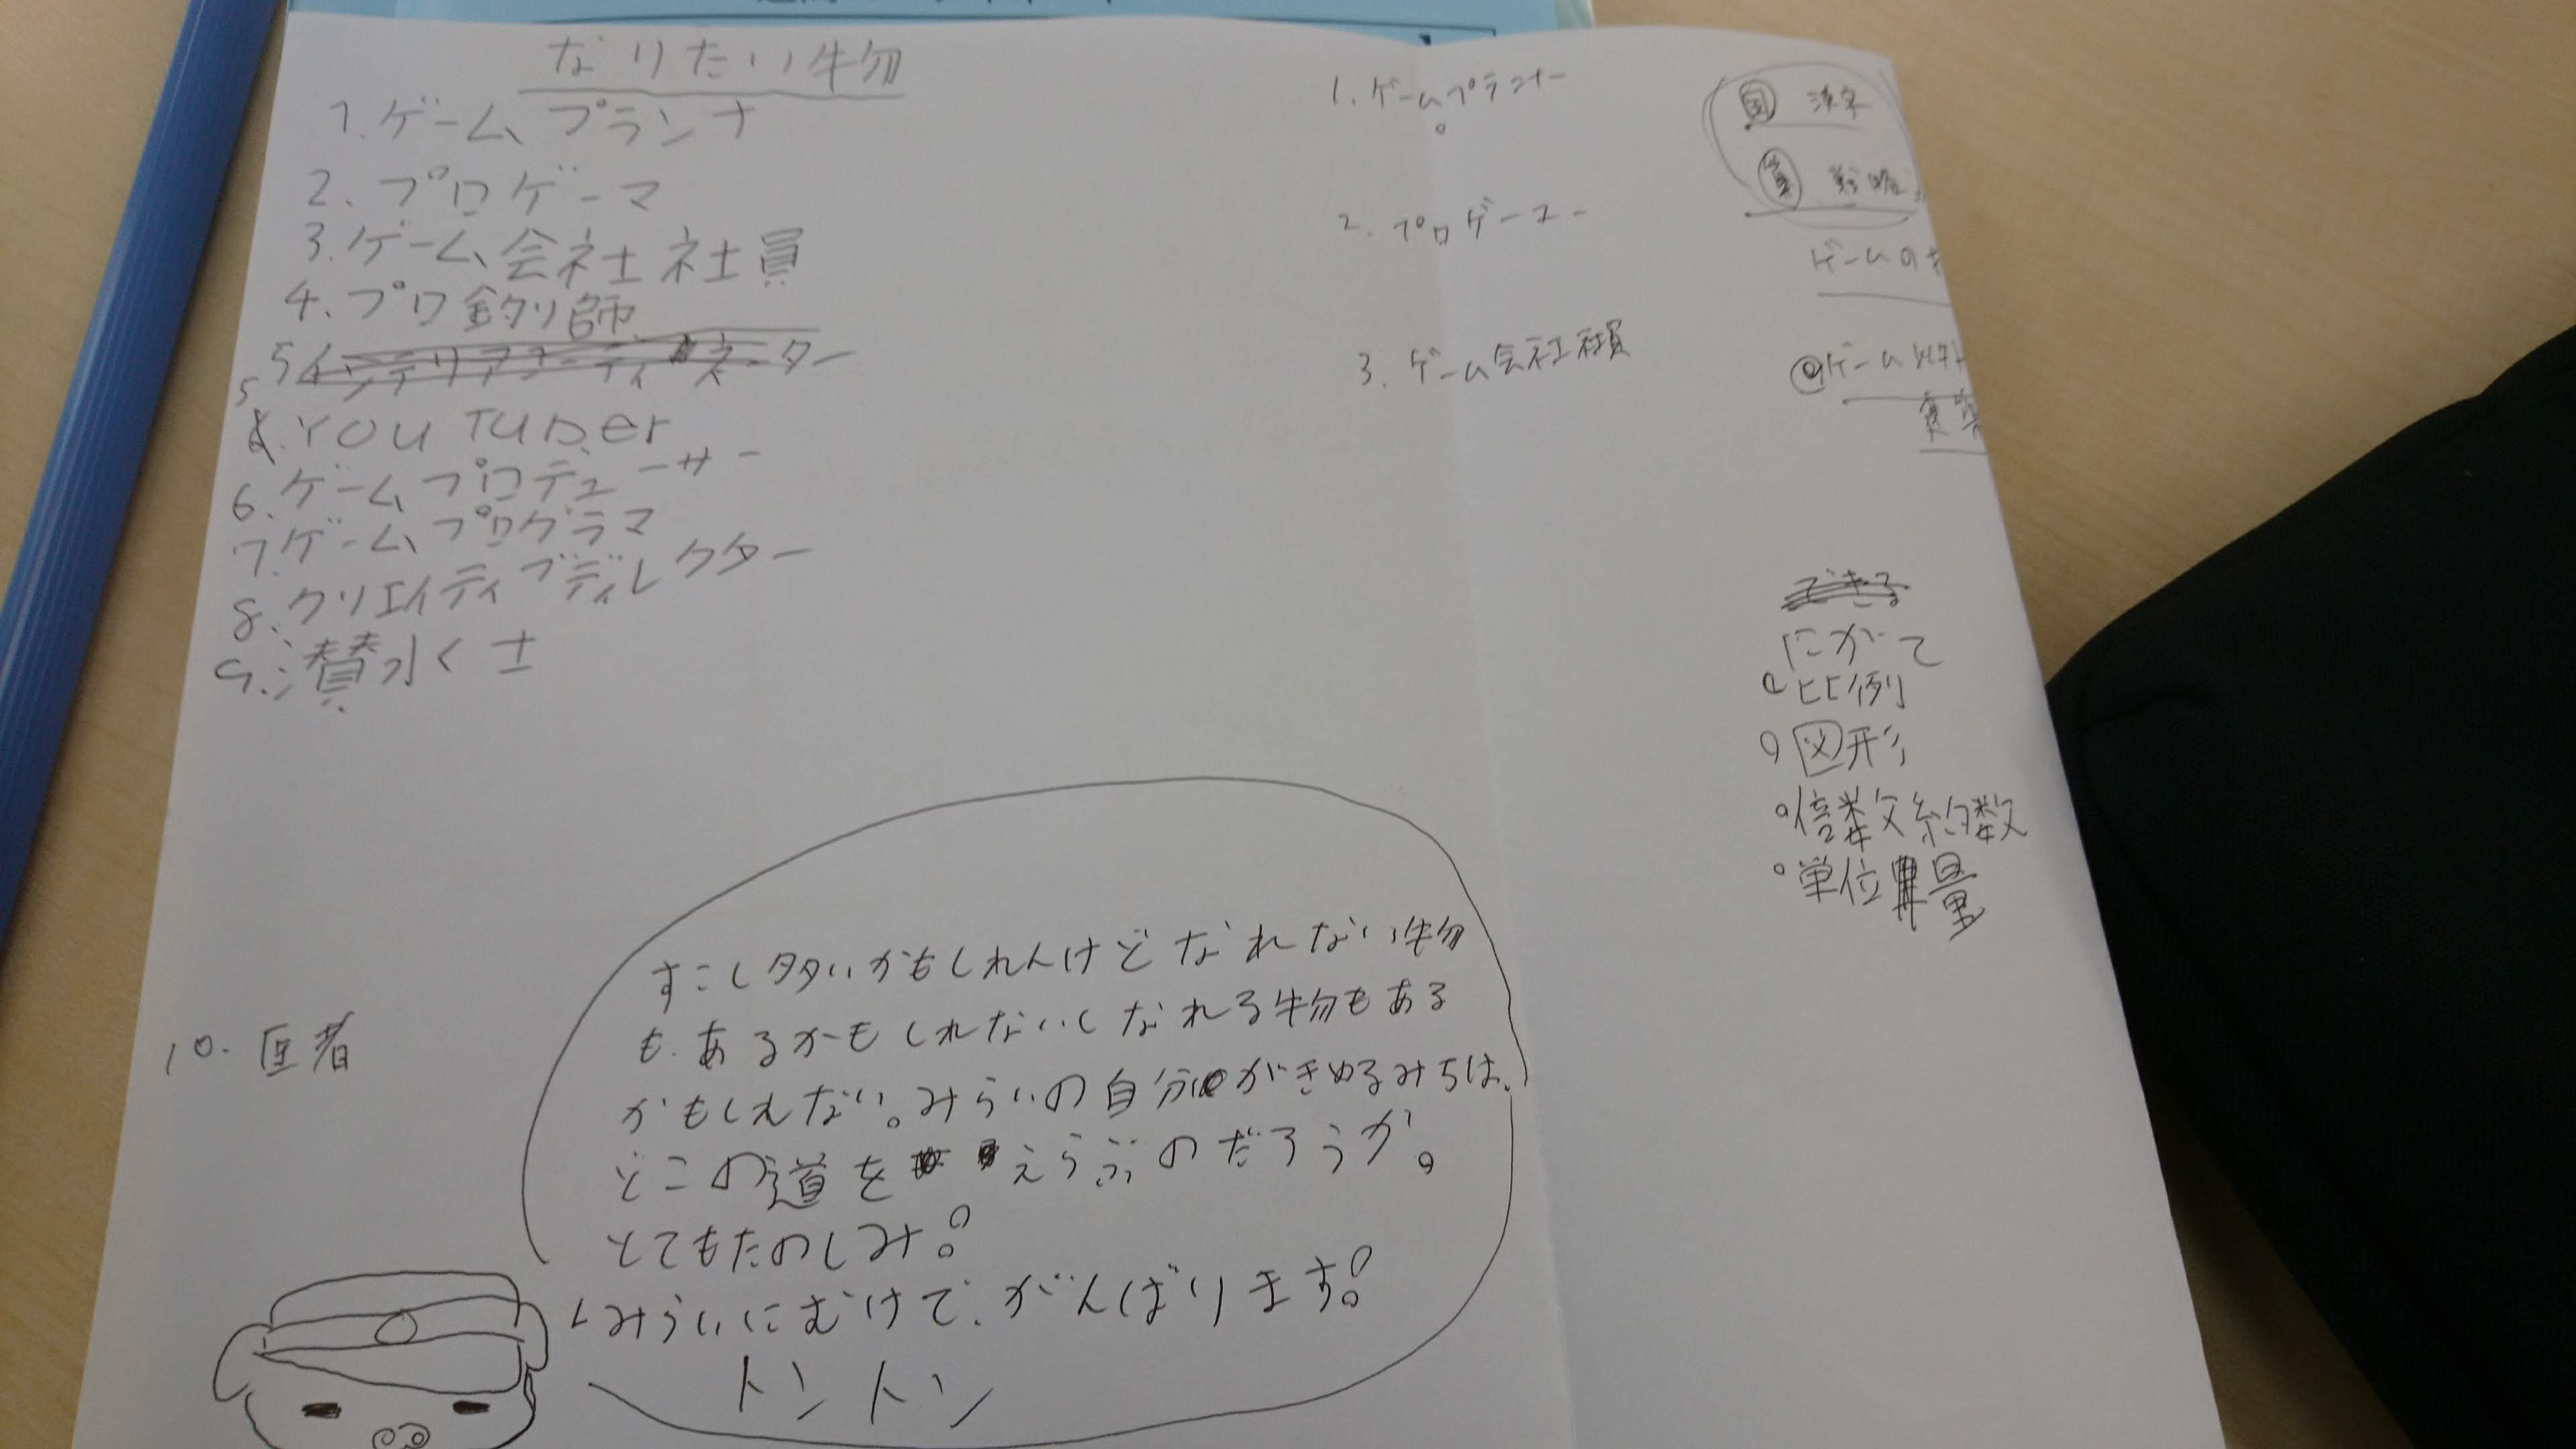 なりたい物
1.ゲームプランナ
2.プロゲーマ
3.ゲーム会社社員
4.プロ釣り師
5インテリアコーディネーター
5
.YOU TUber
6.ゲームプロデューサー
7.ゲームプログラマ
8.クリエイティブディレクター
9.潜水く士
10.医者
すこし多いかもしれんけどなれない物
も.あるかもしれないしなれる物もある
かもしれない。みらいの自分がきめるみちは、
どこの道を えらぶのだろうか。
とてもたのしみ!
みらいにむけて、がんばります!
トントン
1.ゲームプランナー
2.プロゲーマー
3.ゲーム会社社員
国 漢字
ゲームの
ゲーム以外
できる
にがて
比例
図形
倍数約数
単位量